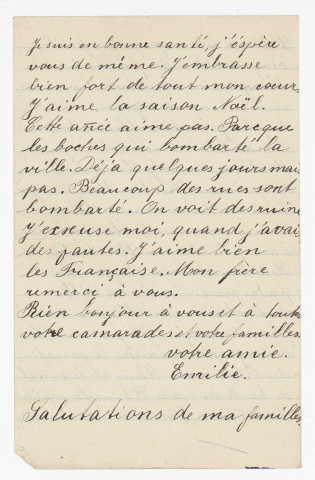 Je suis en bonne santé, j'éspère
vous de méme. J'embrasse
bien fort de tout mon cœur.
J'aime la saison Noël.
Cette añée aime pas. Parcque
les boches qui bombarté la
ville. Déja quelques jours mais
pas. Beaucoup des rues sont
bombarté. On voit des ruine
J'exseuse moi, quand j'avais
des fautes. J'aime bien
les Française. Mon frère
remerci à vous.
Rien bonjour à vous et à touts
votre camarades et votre familles.
votre amie.
Emilie.
Salutations de ma familles.